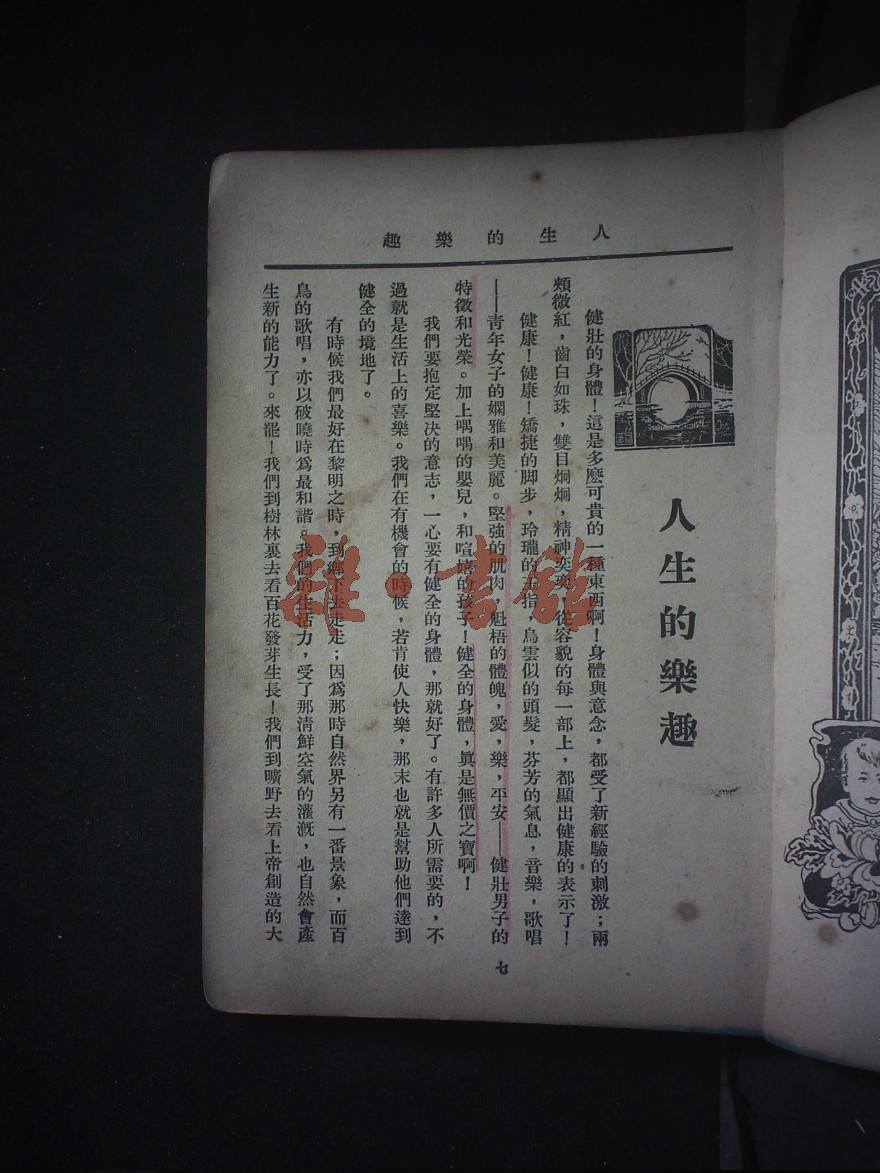 人生的樂趣
人生的樂趣
健壯的身體！這是多麽可貴的一種東西啊！身體與意念，都受了新經驗的刺激；兩
頰微紅，齒白如珠，雙目烱烱，精神奕奕，從容貌的每一部上，都顯出健康的表示了！
健康！健康！矯捷的脚步，玲瓏的玉指，烏雲似的頭髮，芬芳的氣息，音樂，歌唱
——青年女子的嫻雅和美麗。堅強的肌肉，魁梧的體魄，愛，樂，平安——健壯男子的
特徵和光榮。加上喁喁的嬰兒，和喧嘻的孩子！健全的身體，眞是無價之寶啊！
我們要抱定堅決的意志，一心要有健全的身體，那就好了。有許多人所需要的，不
過就是生活上的喜樂。我們在有機會的時候，若肯使人快樂，那末也就是幫助他們達到
健全的境地了。
有時候我們最好在黎明之時，到鄉下去走走；因爲那時自然界另有一番景象，而百
鳥的歌唱，亦以破曉時爲最和諧。我們的生活力，受了那清鮮空氣的灌漑，也自然會產
生新的能力了。來罷！我們到樹林裏去看百花發芽生長！我們到曠野去看上帝創造的大
七
雜·書館